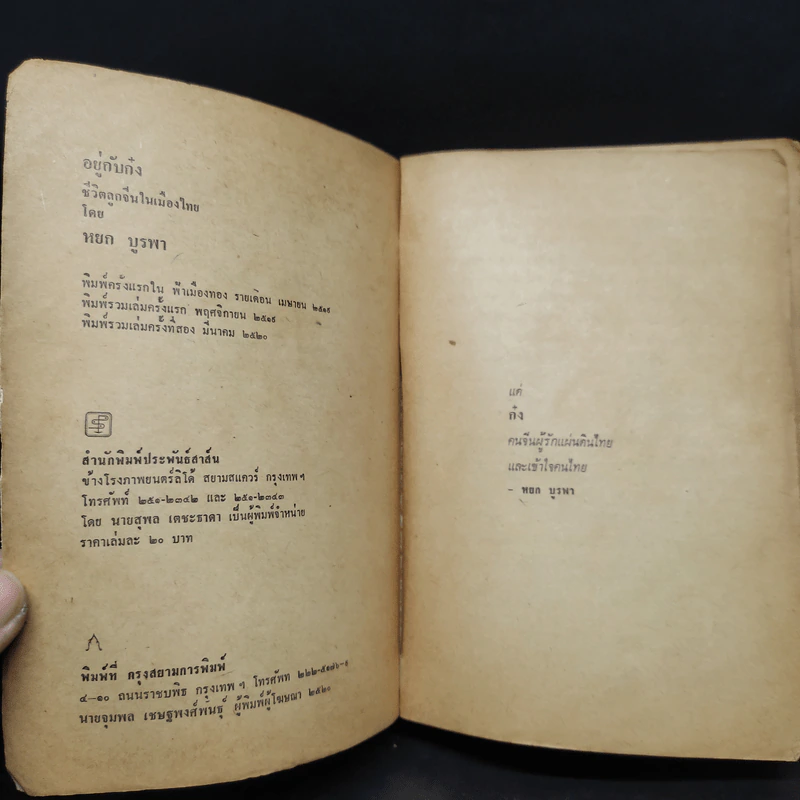 อยู่กับก๋ง
ชีวิตลูกจีนในเมืองไทย
โดย
หยก บูรพา
พิมพ์ครั้งแรกใน ฟ้าเมืองทอง รายเดือน เมษายน ๒๕๑๙
พิมพ์รวมเล่มครั้งแรก พฤศจิกายน ๒๕๑๙
พิมพ์รวมเล่มครั้งที่สอง มีนาคม ๒๕๒๐
สำนักพิมพ์ประพันธ์สาส์น
ข้างโรงภาพยนตร์ลิโด้ สยามสแควร์ กรุงเทพฯ
โทรศัพท์ ๒๕๑-๒๓๔๒ และ ๒๕๑-๒๓๔๓
โดย นายสุพล เตชะธาดา เป็นผู้พิมพ์จำหน่าย
ราคาเล่มละ ๒๐ บาท
พิมพ์ที่ กรุงสยามการพิมพ์
๔–๑๐ ถนนราชบพิธ กรุงเทพฯ โทรศัพท์
นายจุมพล เชษฐพงศ์พันธุ์ ผู้พิมพ์ผู้โฆษณา ๒๕๒๐
แด่
ก๋ง
คนจีนผู้รักแผ่นดินไทย
และเข้าใจคนไทย
– หยก บูรพา